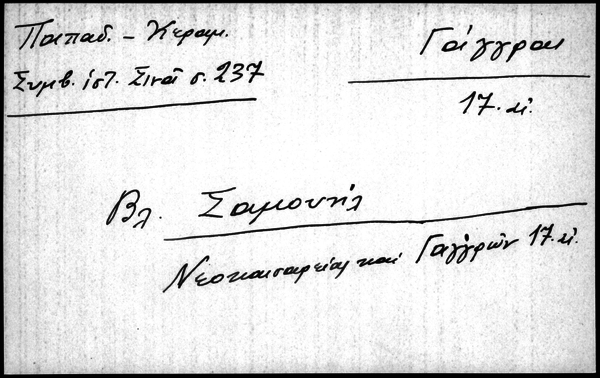 Παπαδ. - Κεραμ.
Συμβ. ἱστ. Σινᾶ σ. 237
Γάγγραι
17. αἰ.
Βλ. Σαμουήλ
Νεοκαισαρείας καὶ Γαγγρῶν 17. αἰ.